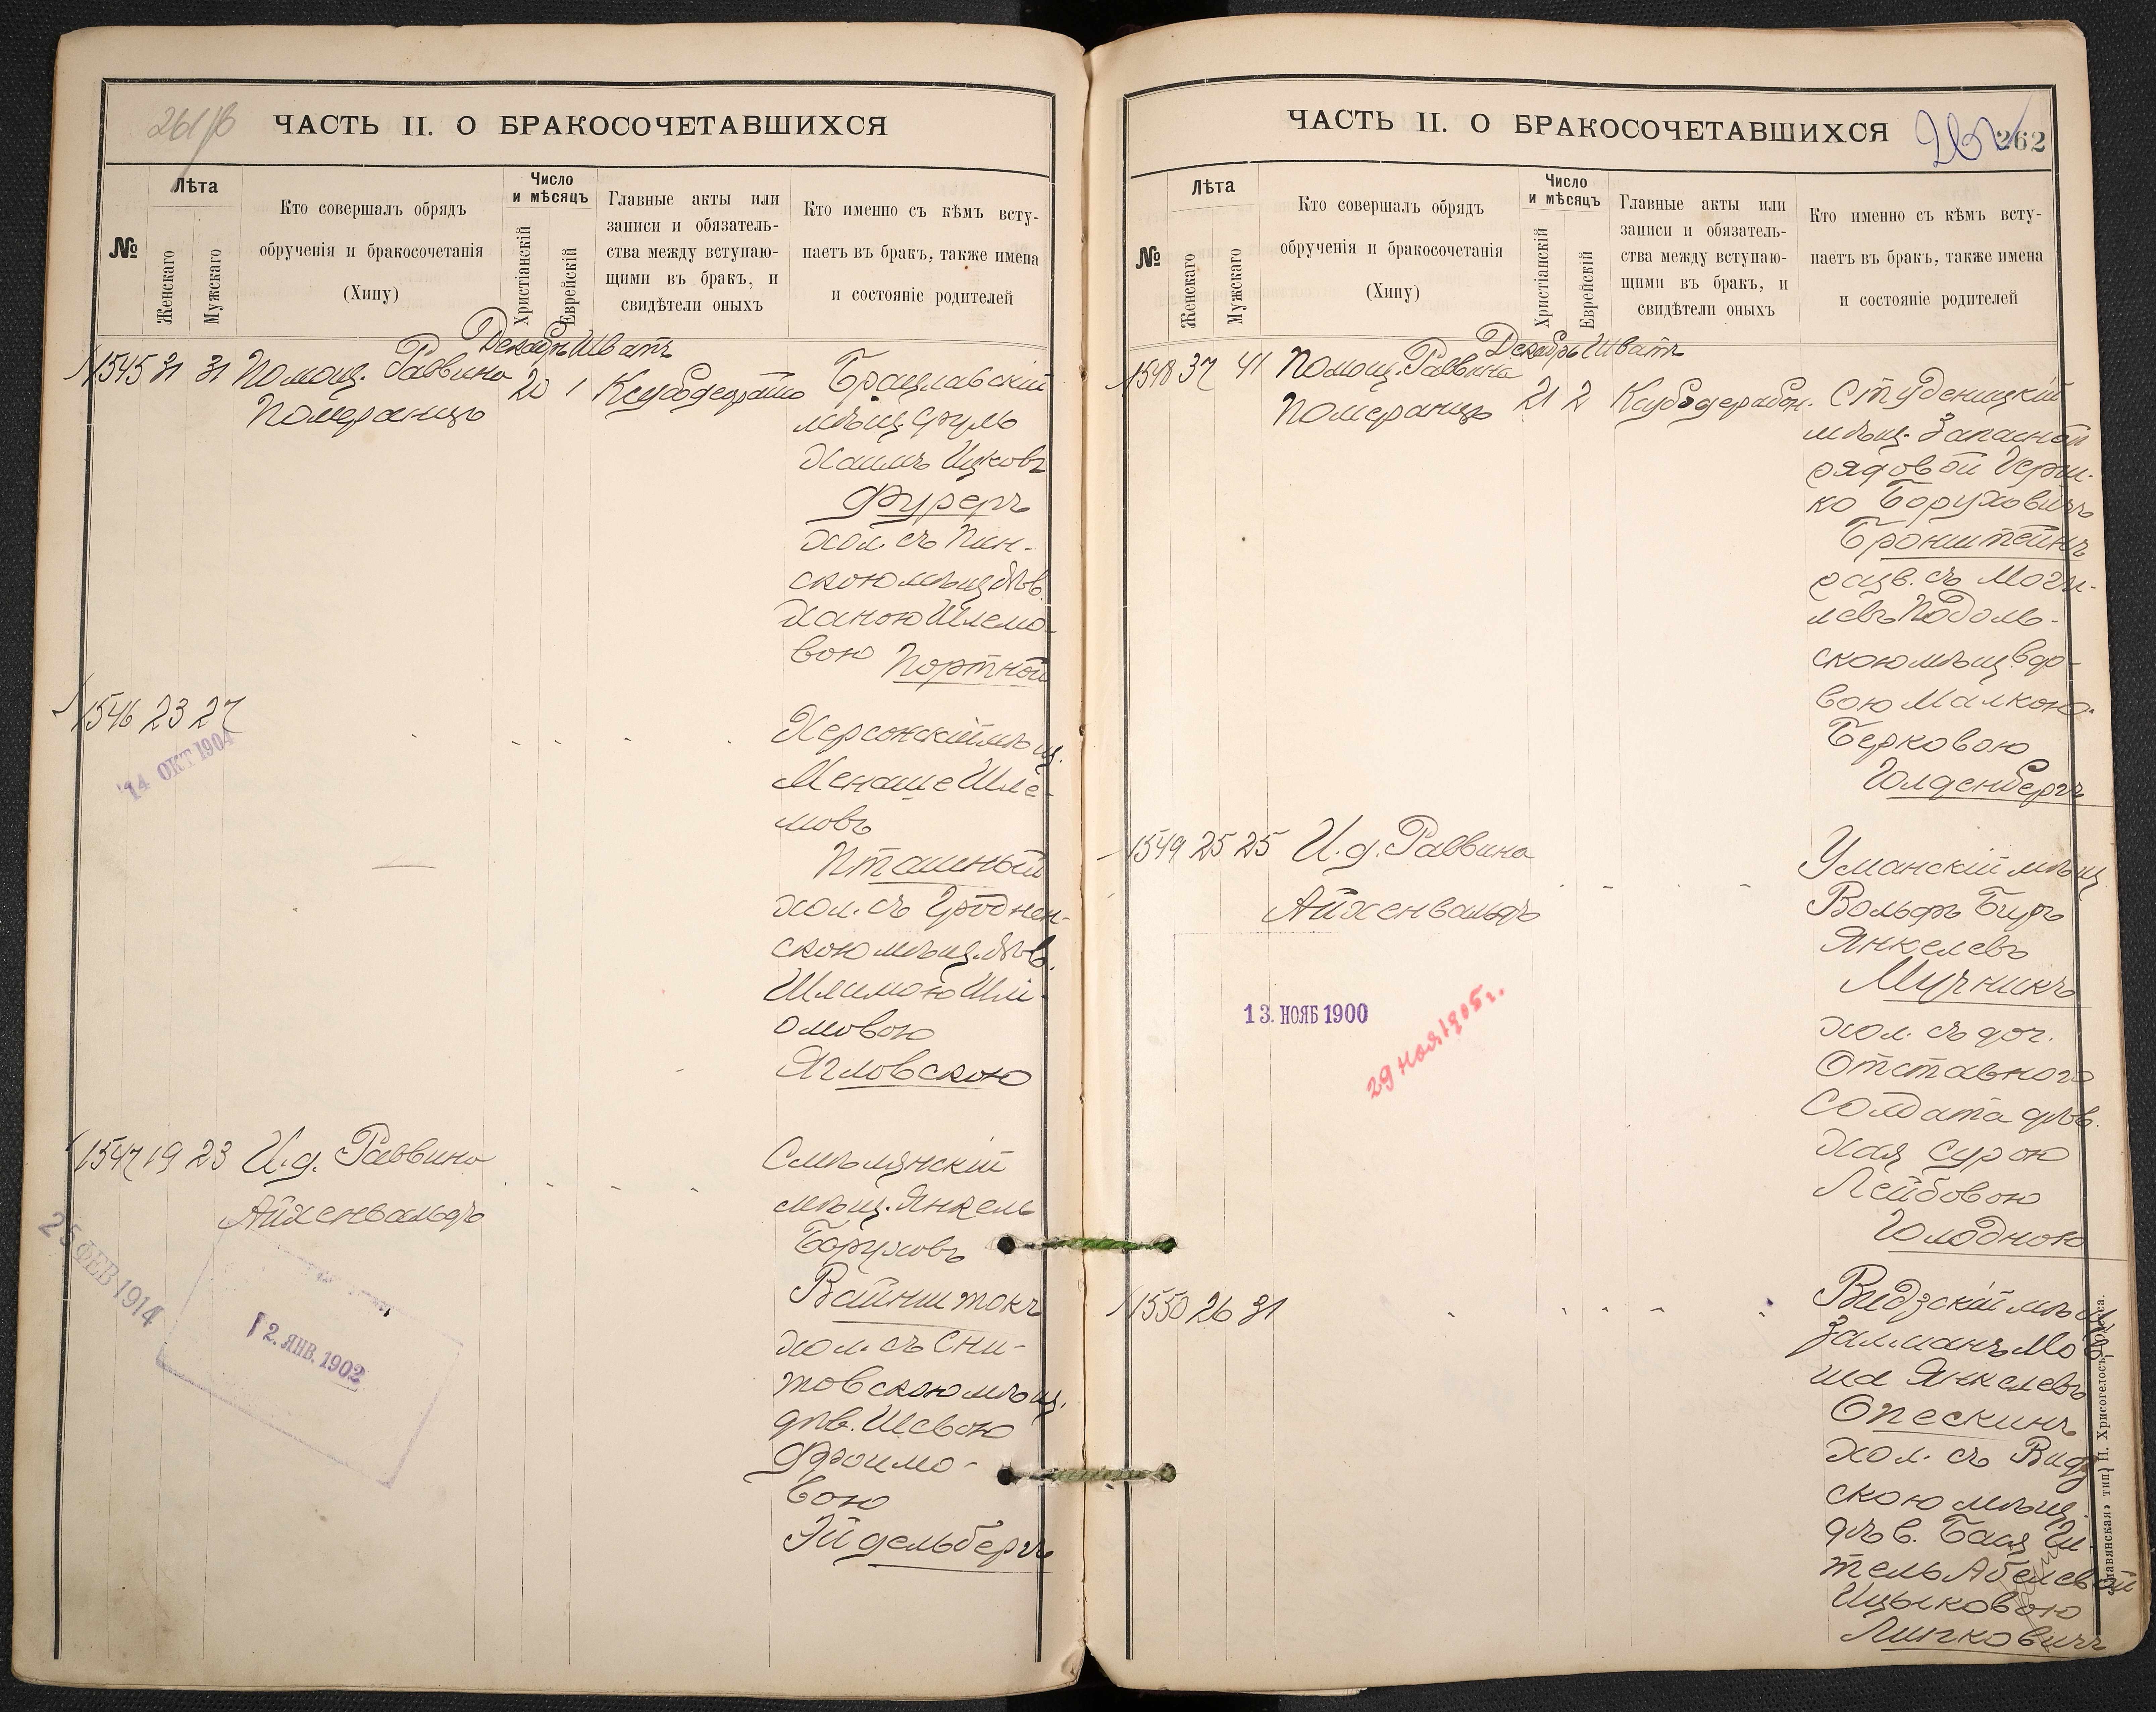 261/б
ЧАСТЬ II. О БРАКОСОЧЕТАВШИХСЯ
№
Лѣта
Женскаго
Мужскаго
Кто совершалъ обрядъ
обрученія и бракосочетанія
(Хипу)
Число
и мѣсяцъ
Христіанскій
Еврейскій
Главные акты или
записи и обязатель-
ства между вступаю-
щими въ бракъ, и
свидѣтели оныхъ
Кто именно съ кѣмъ всту-
паетъ въ бракъ, также имена
и состояніе родителей
Декабрь Шватъ
1545 31 31 Помощ. Раввина
Померанцъ
20 1
Брацлавскій
мѣщ. Сруль
Хаимъ Ицковъ
Фуреръ
хол. съ Пин-
скою мѣщ. дѣв.
Ханою Шлемо-
вою Портной
1546 23 27
14 ОКТ 1904
Херсонскій мѣщ.
Менаше Шле-
мовъ
Пташный
хол. съ Гроднен-
скою мѣщ. дѣв.
Шлимою Шлі-
омовою
Ягловскою
1547 19 23 И. д. Раввина
Айхенвальдъ
25 ФЕВ 1914
12. ЯНВ. 1902
Смѣлянскій
мѣщ. Янкель
Боруховъ
Вайнштокъ
хол. съ Сни-
товскою мѣщ.
дѣв. Шевою
Фроимо-
вою
Эйдельбергъ
ЧАСТЬ II. О БРАКОСОЧЕТАВШИХСЯ
262
№
Лѣта
Женскаго
Мужскаго
Кто совершалъ обрядъ
обрученія и бракосочетанія
(Хипу)
Число
и мѣсяцъ
Христіанскій
Еврейскій
Главные акты или
записи и обязатель-
ства между вступаю-
щими въ бракъ, и
свидѣтели оныхъ
Кто именно съ кѣмъ всту-
паетъ въ бракъ, также имена
и состояніе родителей
Декабрь Шватъ
1548 37 41 Помощ. Раввина
Померанцъ
21 2
Студеницкій
мѣщ. Запасной
рядовой Герш-
ко Боруховичъ
Бронштейнъ
разв. съ Моги-
левъ Подоль-
скою мѣщ. вдо-
вою Малкою
Берковою
Голденбергъ
1549 25 25 И. д. Раввина
Айхенвальдъ
13. НОЯБ 1900
29 ноя 1905 г.
Уманскій мѣщ.
Вольфъ Беръ
Янкелевъ
Мучникъ
хол. съ доч.
Отставного
Солдата дѣв.
Хая Сурою
Лейбовою
Голодною
1550 26 31
Видзскій мѣщ.
Залманъ Мов
ша Янкелевъ
Опескинъ
хол. съ Видз
скою мѣщ.
дѣв. Бася И-
тель Абелевой
Ицыковою
Липковичъ
«Славянская» тип. Н. Хрисогелосъ, Одесса.